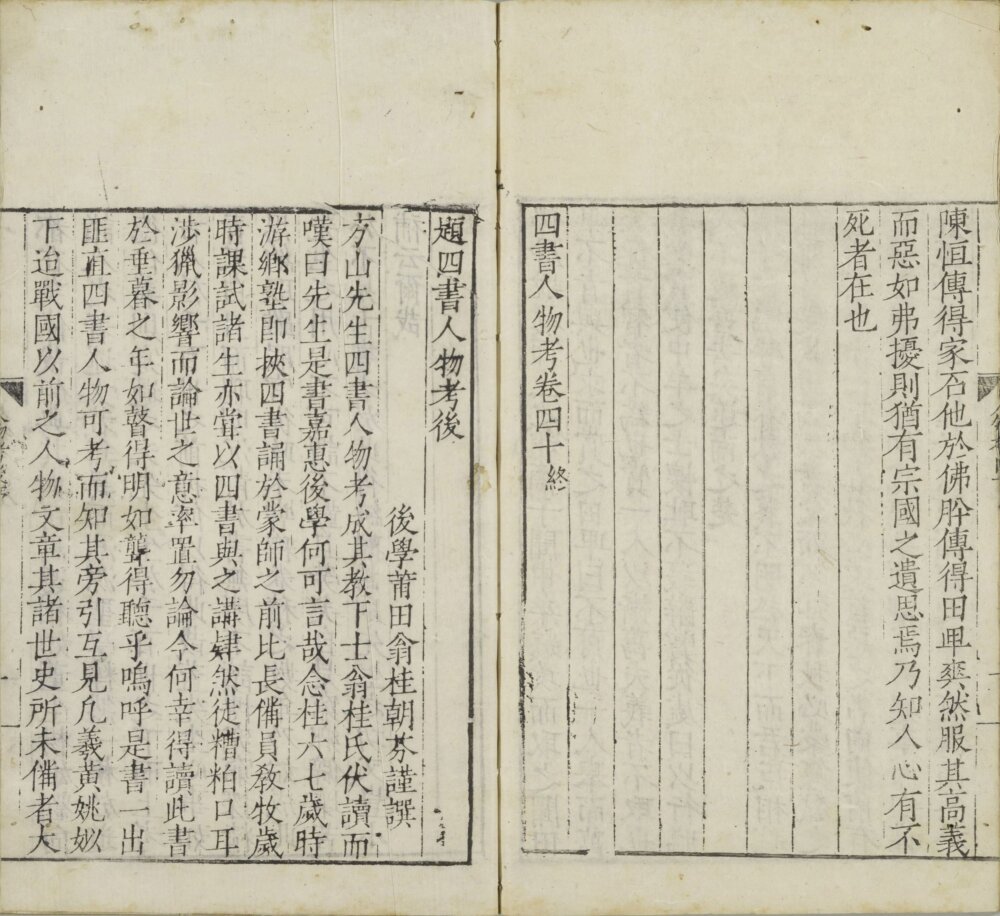 陳恒傳得家石他於佛肸傳得田卑爽然服其高義
而惡如弗擾則猶有宗國之遺思焉乃知人心有不
死者在也
四書人物考卷四十終
題四書人物考後
後學莆田翁桂朝芬謹譔
方山先生四書人物考成其教下士翁桂氏伏讀而
嘆曰先生是書嘉惠後學何可言哉念桂六七歲時
游鄉塾即挾四書誦於蒙師之前比長備員敎牧歲
時課試諸生亦甞以四書與之講肄然徒糟粕口耳
涉獵影響而論世之意率置勿論今何幸得讀此書
於垂暮之年如瞽得明如聾得聽乎嗚呼是書一出
匪直四書人物可考而知其旁引互見凡羲黃姚姒
下迨戰國以前之人物文章其諸世史所未備者大